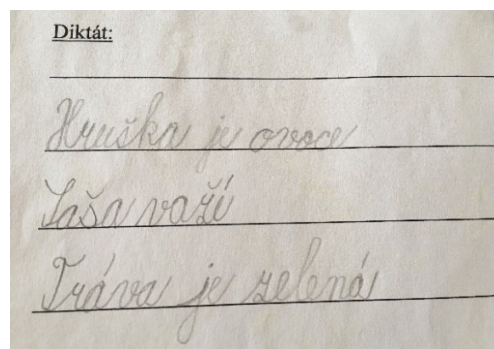 Diktát:
Hruška je ovoce
Saša vaří
Tráva je zelená